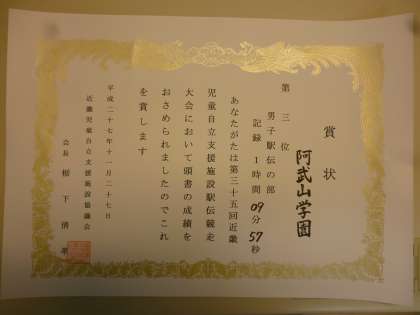 賞状
阿武山学園
第三位
男子駅伝の部
記録 1時間09分57秒
あなたがたは第三十五回近畿
児童自立支援施設駅伝競走
大会において頭書の成績を
おさめられましたのでこれ
を賞します
平成二十七年十一月二十七日
近畿児童自立支援施設協議会
会長